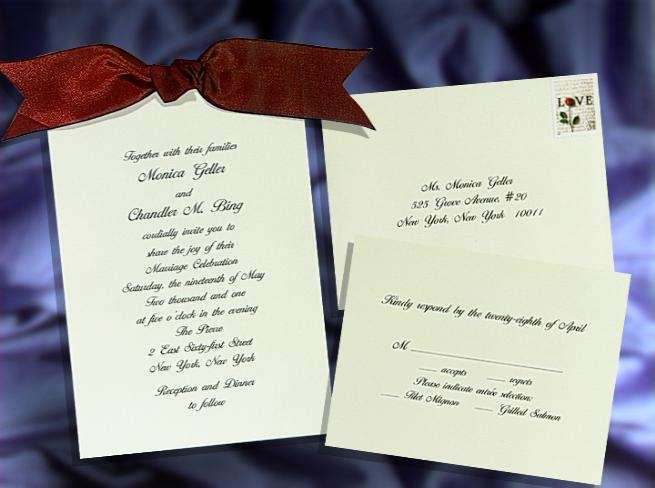 Together with their families
Monica Geller
and
Chandler M. Bing
cordially invite you to
share the joy of their
Marriage Celebration
Saturday, the nineteenth of May
Two thousand and one
at five o'clock in the evening
The Pierre
2 East Sixty-first Street
New York, New York
Reception and Dinner
to follow
LOVE
Ms. Monica Geller
525 Grove Avenue, #20
New York, New York 10011
Kindly respond by the twenty-eighth of April
M
accepts regrets
Please indicate entrée selection:
Filet Mignon Grilled Salmon